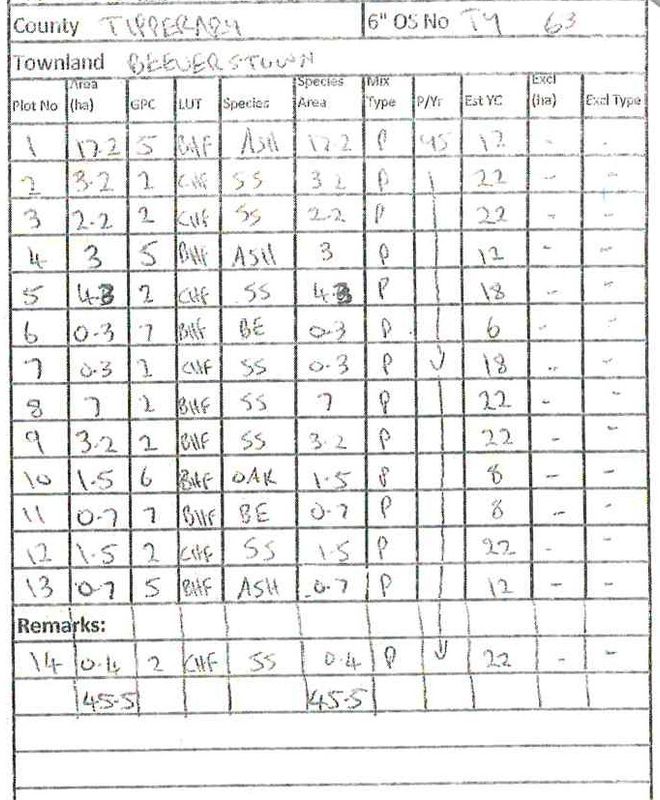 County TIPPERARY 6" OS No TY 63
Townland BEEVERSTOWN
Plot No Area (ha) GPC LUT Species Species Area Mix Type P/Yr Est YC Excl (ha) Excl Type
1 17.2 5 BHF ASH 17.2 P 12 - -
2 3.2 2 CHF SS 3.2 P 22 - -
3 2.2 2 CHF SS 2.2 P 22 - -
4 3 5 BHF ASH 3 P 12 - -
5 4.3 2 CHF SS 4.3 P 18 - -
6 0.3 7 BHF BE 0.3 P 6 - -
7 0.3 2 CHF SS 0.3 P ↓ 18 - -
8 7 2 BHF SS 7 P 22 - -
9 3.2 2 BHF SS 3.2 P 22 - -
10 1.5 6 BHF OAK 1.5 P 8 - -
11 0.7 7 BHF BE 0.7 P 8 - -
12 1.5 2 CHF SS 1.5 P 22 - -
13 0.7 5 BHF ASH 0.7 P 12 - -
Remarks:
14 0.4 2 CHF SS 0.4 P ↓ 22 - -
45.5 45.5